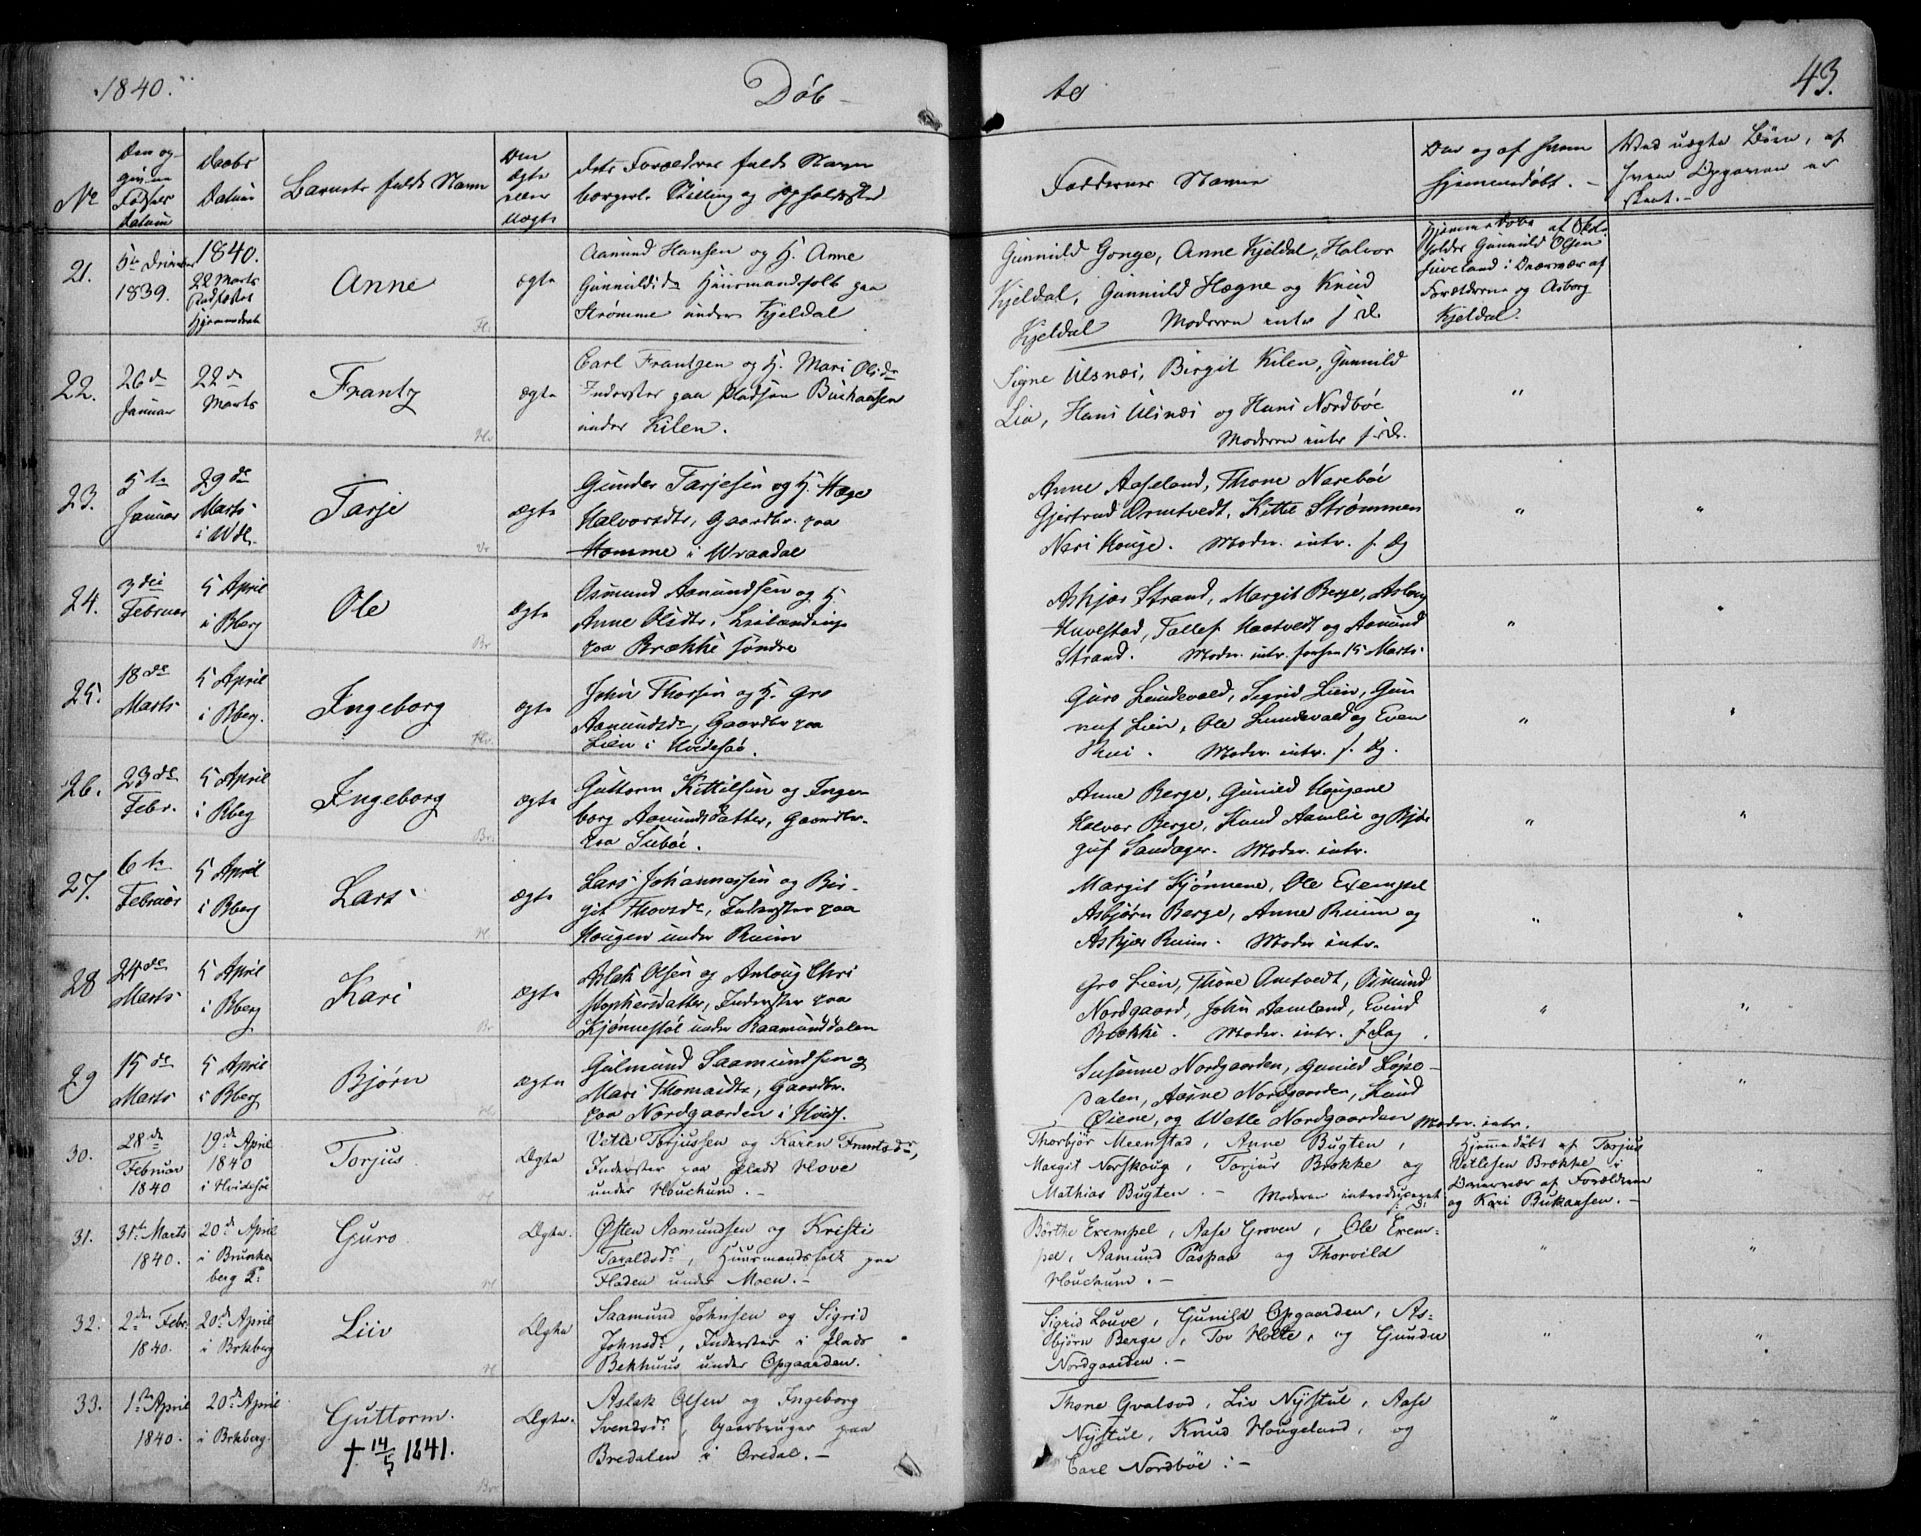 1840.
Døb-
te
43.
No
Den og-
Fødsels
Datum
Daabs
Datum
Barnets fulde Navn
Den
ægte
eller
Uægte
dets Forældres fulde Navn
borgerl. Stilling og Opholdssted
Faddernes Navne
Dag og af hvem
hjemmedøbt. -
Ved uægte Børn, af
hvem Opgaven er
skeet. -
21.
5te December
1839.
1840.
22 Marts
Anne
ægte
Aamund Hansen og H. Anne
Gunnulfsdr Huusmandsfolk paa
Strømme under Kjeldal
Gunnuld Gonge, Anne Kjeldal, Halvor
Kjeldal, Gunnuld Hægne og Knud
Kjeldal Moderen intr f. d.
Hjemmedøbt af
Gunnuld Olsen
i Nærvær af
Forældrene og Asborg
Kjeldal.
22.
26de
Januar
22de
Marts
Frantz
ægte
Carl Frantzen og H. Mari Olsdr
Inderster paa Pladsen Bukaasen
under Kilen.
Signe Ulsnæs, Birgit Kilen, Gunnild
Lia, Hans Ulsnæs og Hans Nordbøe
Moderen intr f. d.
"
23.
5te
Januar
29de
Marts
i Wdl.
Tarje
Vr
ægte
Gunder Tarjesen og H. Hæge
Halvorsdtr, Gaardbr. paa
Homme i Wraadal
Anne Aaseland, Thone Narebøe
Gjertrud Ormtvedt, Kitte Strømmen
Neri Houge. Moder. intr. f. dg
"
"
24.
3die
Februar
5 April
i Bberg
Ole
Br
ægte
Osmund Aamundsen og H.
Anne Olsdtr,
paa Brække søndre
Askjær Strand, Margit Berge, Aslaug
Huvestad, Tallef Haatvedt og Aamund
Strand. Moder. intr. 15 Marts.
"
"
25.
18de
Marts
5 April
i Bberg.
Ingeborg
Hv.
ægte
John Thorsen og H. Gro
Aamundsdr, Gaardbr paa
Lien i Hvidesøe.
Guro Lundevald, Sigrid Lien, Gun
nuf Lien, Ole Lundevald og Even
Hui. Moder. intr. f. dg.
"
"
26.
23de
Febr.
5 April
i Bberg
Ingeborg
Br.
ægte
Guttorm Kittilsen og Inge-
borg Aamundsdatter, Gaardbr.
paa Subøe.
Anne Berge, Gunild Hougane
Halvor Berge, Knud Aamlie og Bjør
guf Sandager. Moder. intr.
"
"
27.
6te
Februar
5 April
i Bberg
Lars
H.
ægte
Lars Johannessen og Bir-
git Thovsdr, Inderster paa
Hougen under Ruim
Margit Kjønnene, Ole Exempel
Asbjørn Berge, Anne Ruim og
Askjær Ruim. Moder intr.
"
"
28
24de
Marts
5 April
i Bberg
Kari
Br
ægte
Aslak Olsen og Anlaug Chri
stophersdatter, Inderster paa
Kjønnestøl under Raamunddalen
Gro Lien, Thone Omtvedt, Osmund
Nordgaard, John Aamland, Eivind
Brække. Moder. intr. f. Dag.
"
"
29
15de
Marts
5 April
i Bberg
Bjørn
H.
ægte
Gulmund Saamundsen og
Mari Thomasdtr, Gaardbr.
paa Nordgaarden i Hvids.
Susanne Nordgaarden, Gunild Løpe-
dalen, Aasne Nordgaarden, Knud
Øiene, og Wetle Nordgaarden Moder. intr.
"
30.
28de
Februar
1840
19de April
1840
i Hvidesøe
Torjus
H
Ægte
Vetle Torjussen og Karen Frantsdr,
Inderster paa Plads Hove
under Houckum. -
Thorbjør Meenstad, Anne Bugten,
Margit Norskoug, Torjus Brokke og
Mathias Bugten. - Moderen introduceret
f. D.
Hjemmedøbt af Torjus
Vetlesen Brække i
Overvær af Forældrene
og Kari Bukaasen. -
"
31.
31te Marts
1840.
20de April
i Brunke
berg K.
Guro
H
Ægte.
Østen Aamundsen og Kristi
Taraldsdr, Huusmandsfolk paa
Fladen under Moen. -
Børthe Exempel, Aase Groven, Ole Exem-
pel, Aamund Paspaa og Thorvild
Houckum. -
"
"
32.
2den Febr.
1840.
20de April
i Brkberg
Liv
H
Ægte
Saamund Johnsen og Sigrid
Johnsdr, Inderster i Plads
Bekhuus under Opgaarden.
Sigrid Louve, Gunild Opgaarden, As-
bjørn Berge, Tov Holte, og Gunder
Nordgaarden. -
"
"
33.
1ste April
1840.
20de April
i Brkberg.
Guttorm.
† 14/5 1841.
Br.
Ægte.
Aslak Olsen og Ingeborg
Svendsdr, Gaarbruger paa
Bredalen i Øredal. -
Thone Gvalsod, Liv Nystul, Aase
Nystul, Knud Hougeland, og
Carl Nordbøe. -
"
"